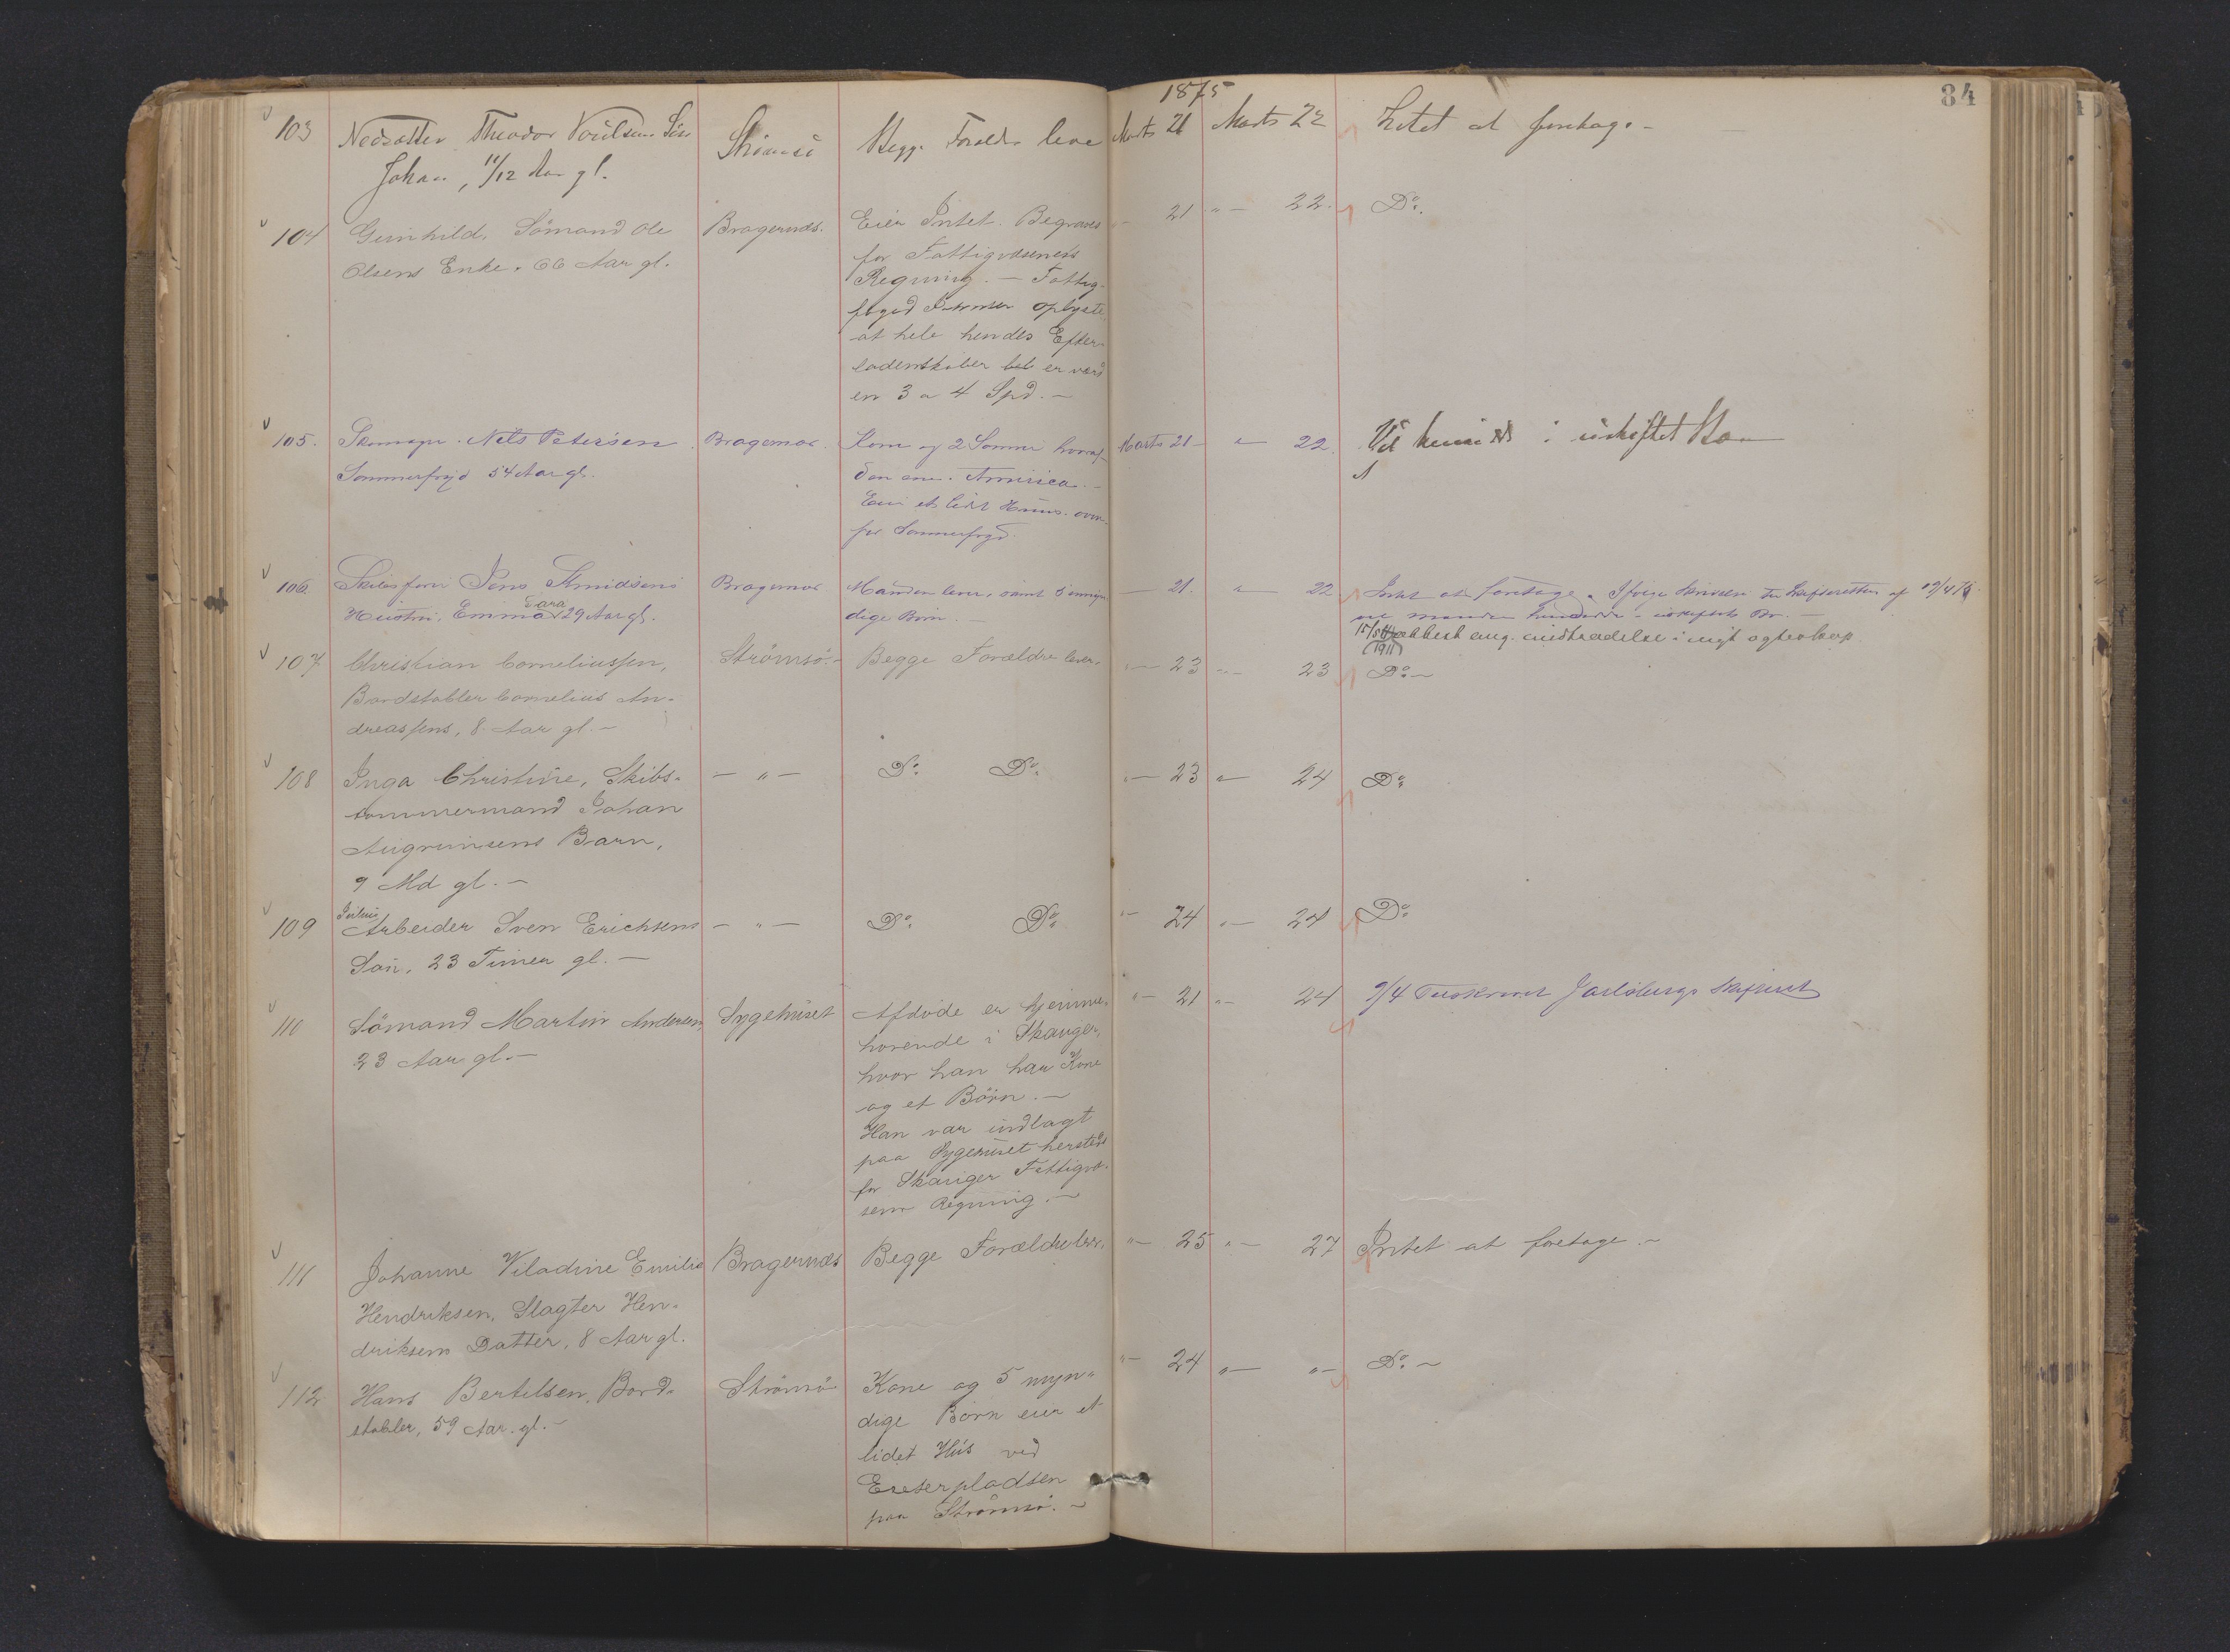 1875
84
103
Theodor
Søn
Johan, 11/12 Aar gl.
Strömsö
Begge Forældre leve
Marts 21
Marts 22
Intet at foretage. —
104
Gunhild, Sömand Ole
Olsens Enke. 66 Aar gl.
Bragernæs.
Eier Intet. Begraves
for Fattigvæsenets
Regning. — Fattig-
foged oplyste
at hele hendes Efter-
ladenskaber er værd
en 3 a 4 Spd. —
— 21
" — 22.
Do.
105.
Skomager Nils Petersen
Sommerfryd 54 Aar gl.
Bragernæs.
Kone og 2 Sönner hvoraf
den ene i America. —
Eier et lidet Huus oven-
for Sommerfryd
Marts 21 —
" — 22.
Vil hensidde i uskiftet Bo —
106.
Skibsfører Jens
Hustru, Emma Lara 29 Aar gl.
Bragernæs
Manden lever, samt 5 umyn
dige Börn. —
— 21.
" — 22
Intet at foretage. Ifølge Skrivelse fra Skifteretten af
vil manden hensidde i uskiftet Bo. —
15/5 ang. indtrædelse i nyt ægteskap.
(1911)
107
Christian Corneliussen,
Bordstabler Cornelius An-
dreassens, 8 Aar gl. —
Strömsö. —
Begge Forældre lever.
" — 23
" — 23
Do. —
108
Inga Christine, Skibs-
tömmermand Johan
Barn,
9 Md gl. —
— " —
Do. Do.
" — 23
" — 24
Do.
109
Arbeider Sven Erichsens
Sön, 23 Timer gl. —
— " —
Do. Do.
" — 24
" — 24
Do.
110
Sömand Martin Andersen,
23 Aar gl. —
Sygehuset
Afdöde er hjemme-
hörende i Skauger,
hvor han har Kone
og et Börn. —
Han var indlagt
paa Sygehuset hersteds
for Skauger Fattigvæ-
sens Regning. —
" — 21
" — 24
9/4 Tilskrevet Jarlsbergs Skifteret
111
Johanne Viladine Emilie
Hendriksen, Slagter Hen-
driksens Datter, 8 Aar gl.
Bragernæs
Begge Forældre lever.
" — 25
" — 27
Intet at foretage. —
112
Hans Bertelsen, Bord-
stabler, 59 Aar. gl. —
Strömsö
Kone og 5 myn-
dige Börn eier et
lidet Hus ved
Exeserpladsen
paa Strömsö. —
" — 24
" — " —
Do. —